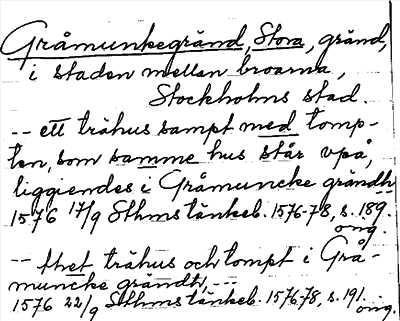 Gråmunkegränd, Stora, gränd,
i staden mellan broarna,
Stockholms stad.
-- ett trähus sampt med tomp-
ten, som samme hus står vpå,
liggiendes i Gråmuncke grändh
1576 17/9 Sthms tänkeb. 1576-78, s. 189.
orig.
-- thet trähus och tompt i Grå-
muncke grändh, --
1576 22/9 Sthms tänkeb. 1576-78, s. 191.
orig.